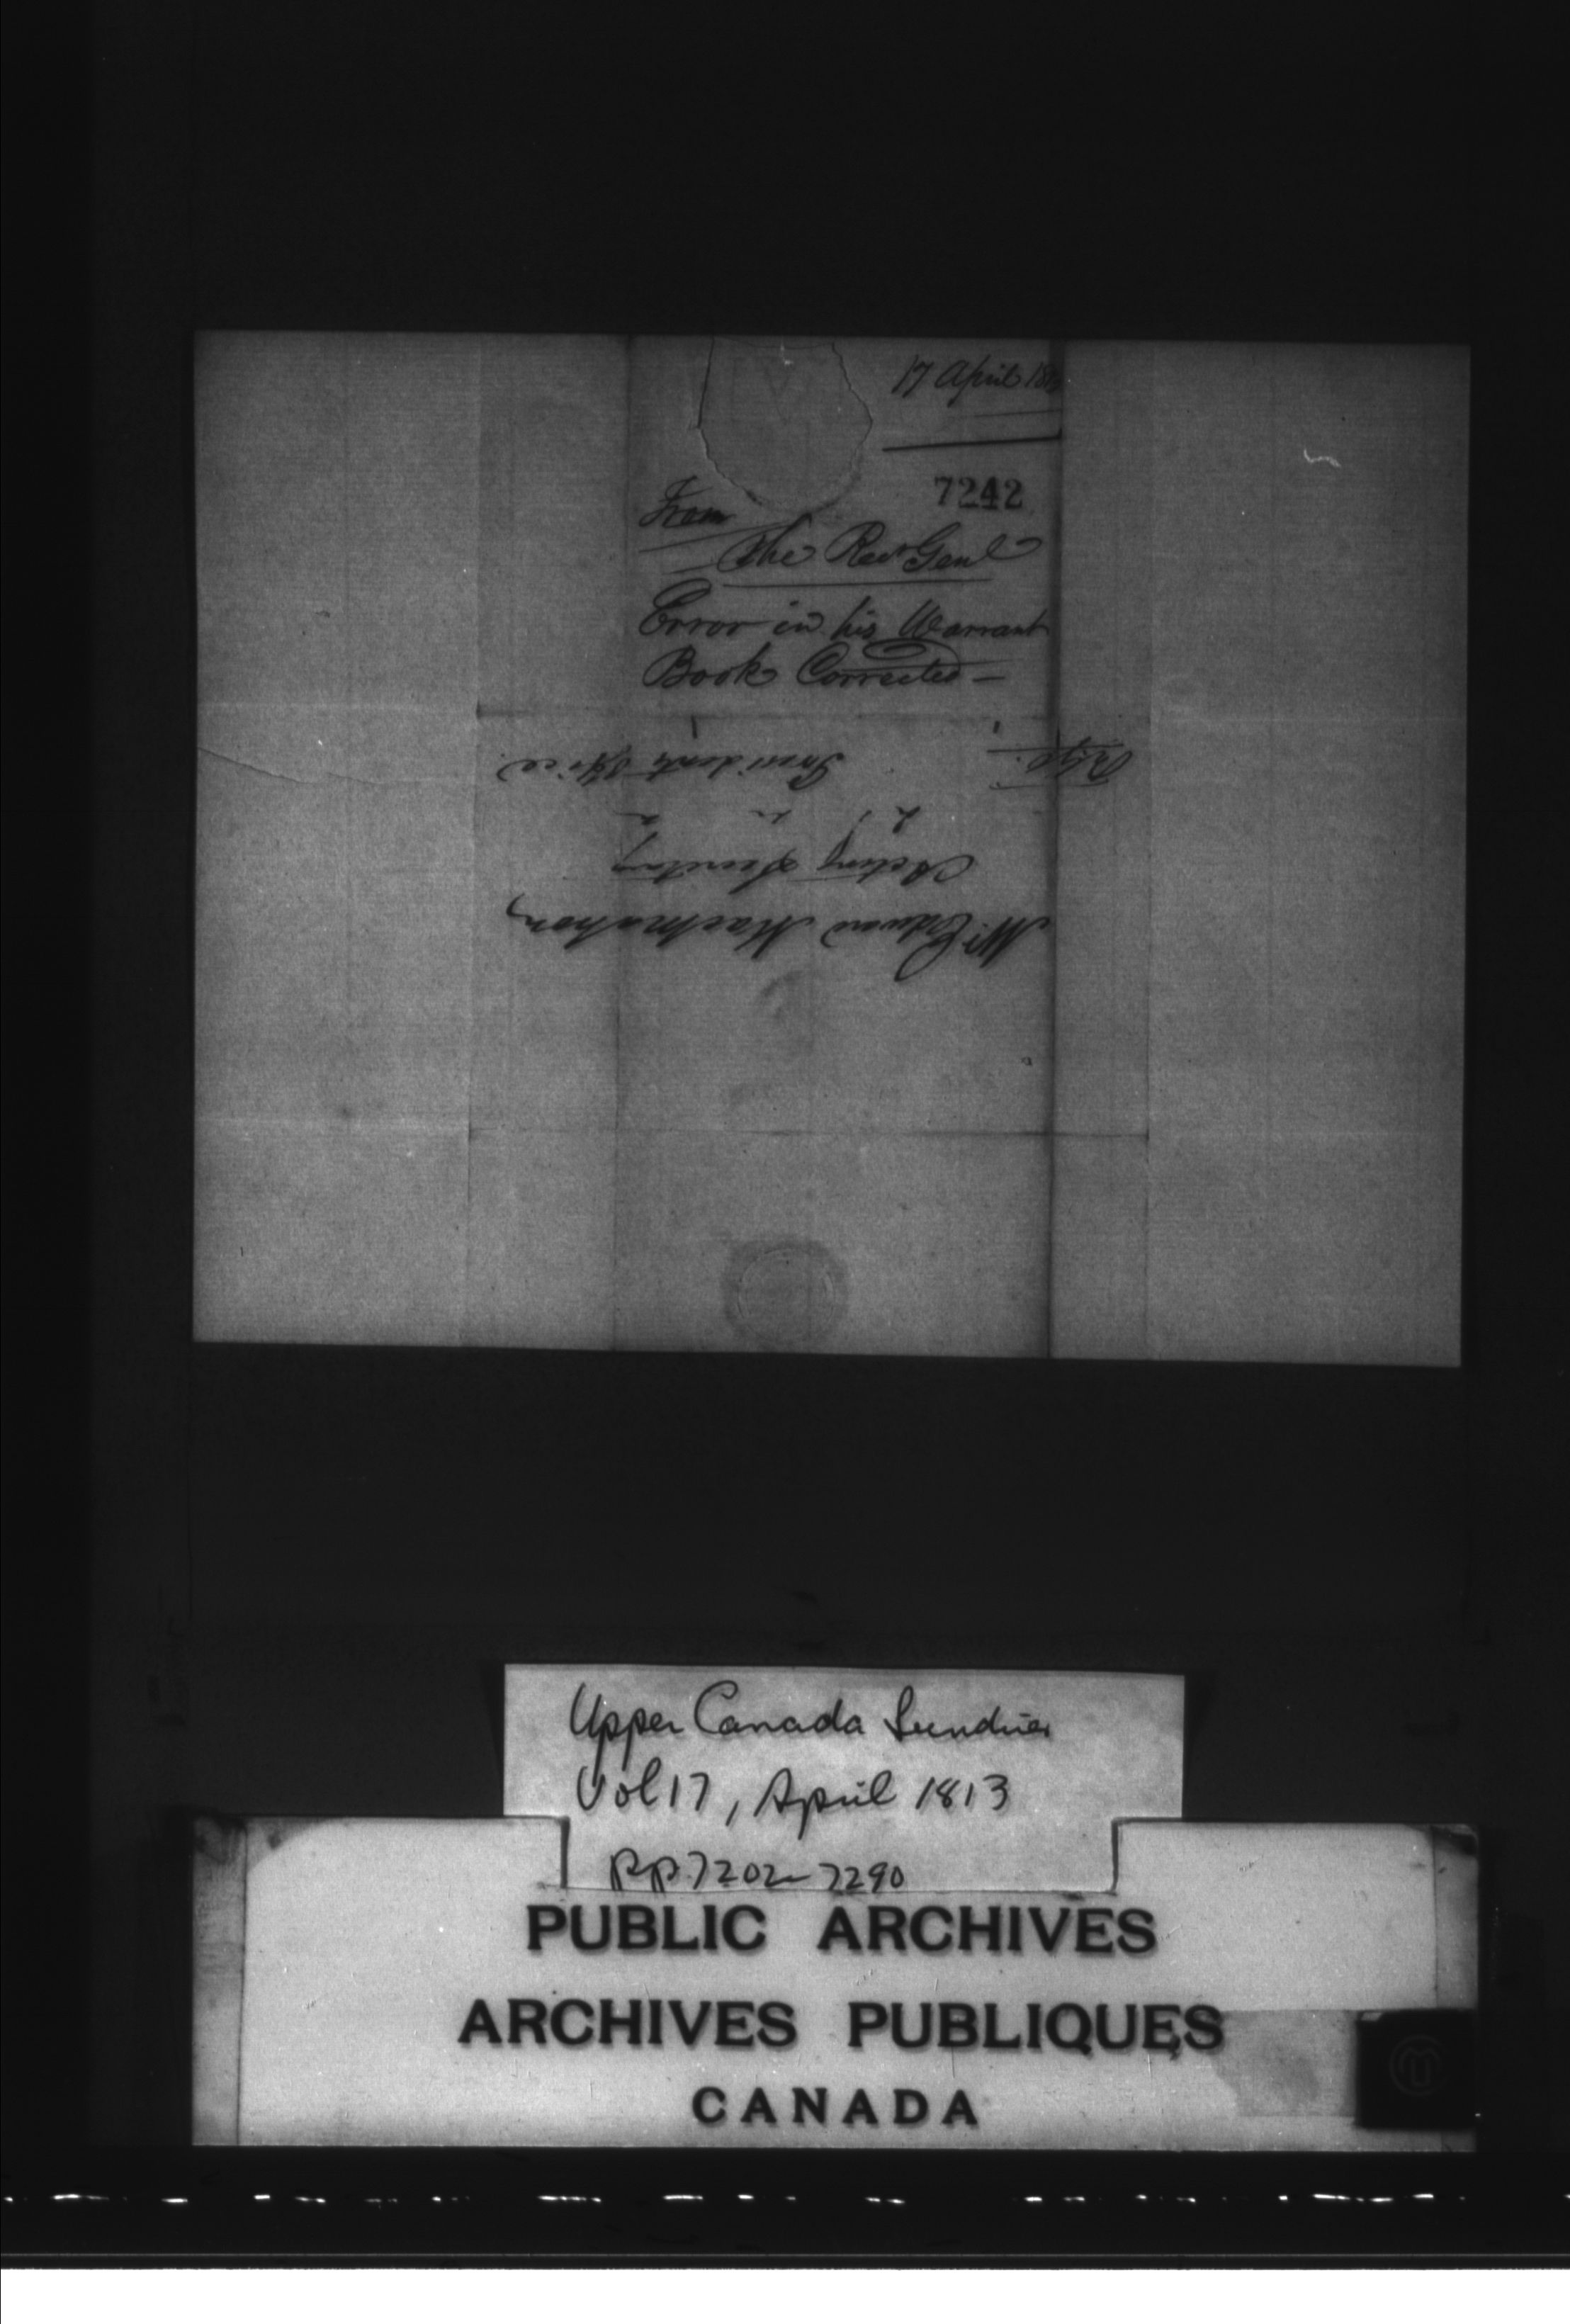 17 April 18
7242
From
The Recr Genl
Error in his Warrant
Book Corrected —
Mr. Edward MacMahon
Acting Secretary
Presidents Office
Upper Canada Sundries
Vol 17, April 1813
pp. 7202-7290
PUBLIC ARCHIVES
ARCHIVES PUBLIQUES
CANADA